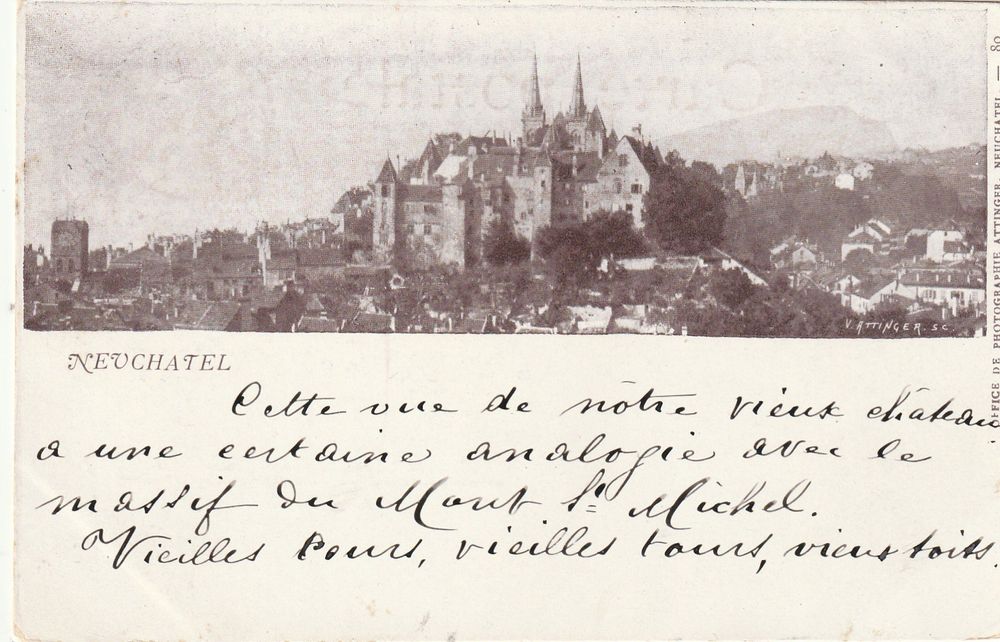 V. ATTINGER. SC.
OFFICE DE PHOTOGRAPHIE ATTINGER, NEUCHATEL. — 80
NEUCHATEL
Cette vue de nôtre vieux château
a une certaine analogie avec le
massif du Mont St Michel.
Vieilles cours, vieilles tours, vieux toits.